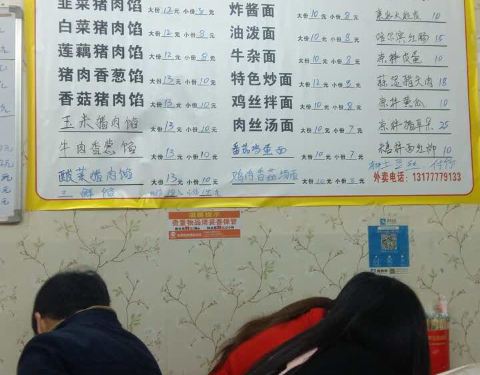 韭菜猪肉馅 大份12元 小份8元
白菜猪肉馅 大份12元 小份8元
莲藕猪肉馅 大份12元 小份8元
猪肉香葱馅 大份13元 小份10元
香菇猪肉馅 大份13元 小份10元
玉米猪肉馅 大份13元 小份10元
牛肉香葱馅 大份13元 小份10元
酸菜猪肉馅 大份13元 小份10元
三鲜馅
炸酱面 大份10元 小份8元
油泼面 大份10元 小份8元
牛杂面 大份10元 小份8元
特色炒面 大份10元 小份8元
鸡丝拌面 大份10元 小份8元
肉丝汤面 大份10元 小份7元
番茄鸡蛋面 大份10元 小份7元
鸡肉香菇焖面 大份10元 小份7元
10
哈尔滨红肠 15
凉拌皮蛋 10
蒜泥猪头肉 18
凉拌黄瓜 10
凉拌猪耳朵 25
10
外卖电话:13177779133
温馨提示
贵重物品请妥善保管